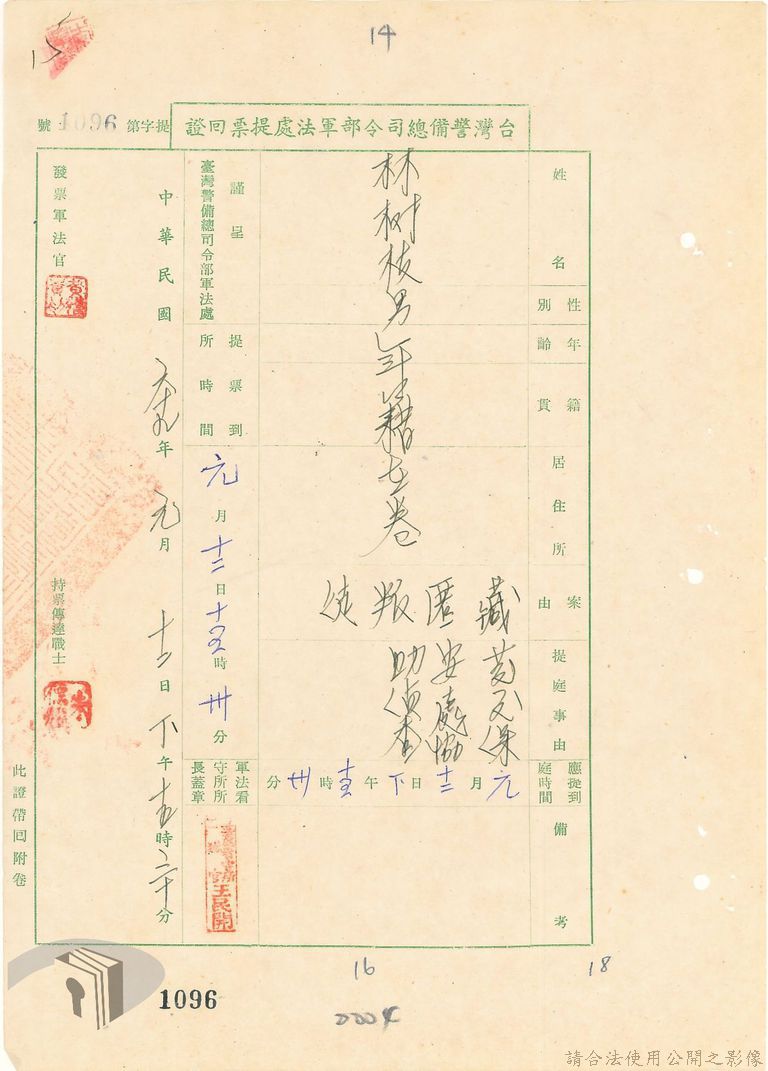 14
15
台灣警備總司令部軍法處提票回證
提字第1096號
姓名
林树枝
性別
男
年齡
籍貫
年籍在卷
居住所
案由
藏匿叛徒
提庭事由
協助偵查
應提到庭時間
元月十二日下午十五時卅分
備考
謹呈
臺灣警備總司令部軍法處
提票到所時間
元月十二日十五時卅分
軍法看守所所長蓋章
王民開
中華民國六十九年元月十二日下午十五時二十分
發票軍法官
持票傳達戰士
此證帶回附卷
16
18
1096
0004
請合法使用公開之影像